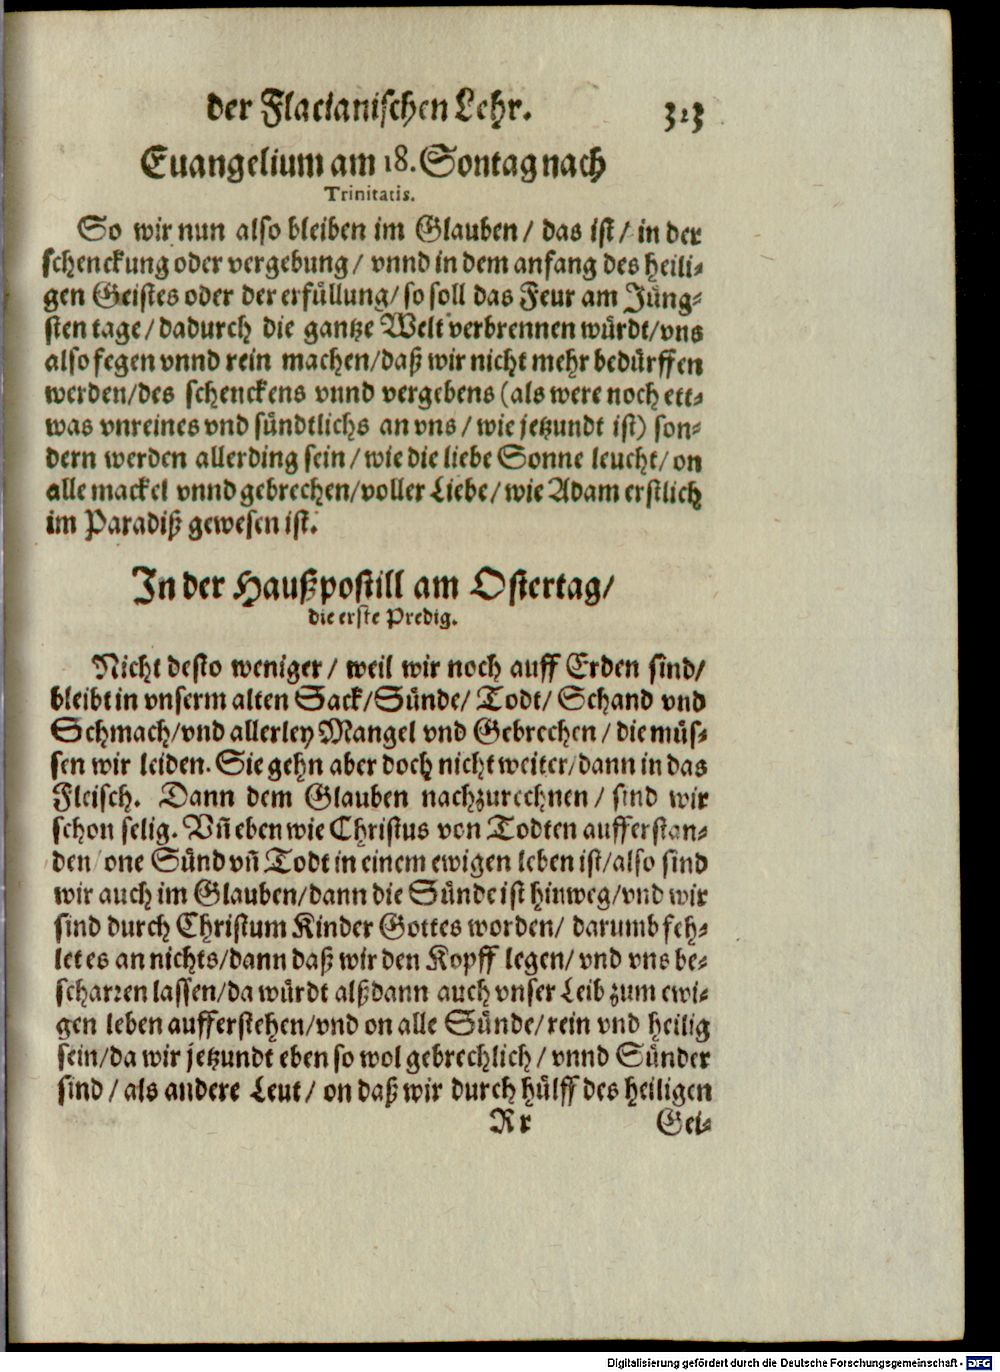 der Flacianischen Lehr. 313
Euangelium am 18. Sontag nach
Trinitatis.
So wir nun also bleiben im Glauben / das ist / in der
schenckung oder vergebung / vnnd in dem anfang des heili-
gen Geistes oder der erfüllung / so soll das Feur am Jüng-
sten tage / dadurch die gantze Welt verbrennen würdt / vns
also fegen vnnd rein machen / daß wir nicht mehr bedürffen
werden / des schenckens vnnd vergebens (als were noch ett-
was vnreines vnd sündtlichs an vns / wie jetzundt ist) son-
dern werden allerding sein / wie die liebe Sonne leucht / on
alle mackel vnnd gebrechen / voller Liebe / wie Adam erstlich
im Paradiß gewesen ist.
In der Haußpostill am Ostertag /
die erste Predig.
Nicht desto weniger / weil wir noch auff Erden sind /
bleibt in vnserm alten Sack / Sünde / Todt / Schand vnd
Schmach / vnd allerley Mangel vnd Gebrechen / die müs-
sen wir leiden. Sie gehn aber doch nicht weiter / dann in das
Fleisch. Dann dem Glauben nachzurechnen / sind wir
schon selig. Vñ eben wie Christus von Todten aufferstan-
den / one Sünd vñ Todt in einem ewigen leben ist / also sind
wir auch im Glauben / dann die Sünde ist hinweg / vnd wir
sind durch Christum Kinder Gottes worden / darumb feh-
let es an nichts / dann daß wir den Kopff legen / vnd vns be-
scharren lassen / da würdt alß dann auch vnser Leib zum ewi-
gen leben aufferstehen / vnd on alle Sünde / rein vnd heilig
sein / da wir jetzundt eben so wol gebrechlich / vnnd Sünder
sind / als andere Leut / on daß wir durch hülff des heiligen
Rr Gei-
Digitalisierung gefördert durch die Deutsche Forschungsgemeinschaft - DFG